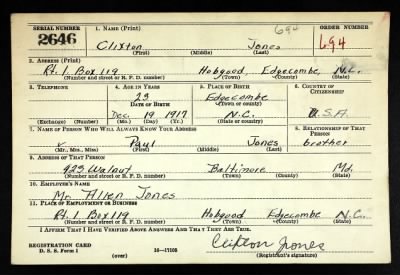 SERIAL NUMBER 1. NAME (Print) 694 ORDER NUMBER
2646 Clixton Jones 694
(First) (Middle) (Last)
2. ADDRESS (Print)
Rt. 1 Box 119 Hobgood, Edgecombe, N.C.
(Number and street or R. F. D. number) (Town) (County) (State)
3. TELEPHONE 4. AGE IN YEARS 5. PLACE OF BIRTH 6. COUNTRY OF CITIZENSHIP
23 Edgecombe
DATE OF BIRTH (Town or county)
Dec. 19 1917 N.C. U.S.A.
(Exchange) (Number) (Mo.) (Day) (Yr.) (State or country)
7. NAME OF PERSON WHO WILL ALWAYS KNOW YOUR ADDRESS 8. RELATIONSHIP OF THAT PERSON
Paul Jones brother
(Mr., Mrs., Miss) (First) (Middle) (Last)
9. ADDRESS OF THAT PERSON
923 Walnut Baltimore Md.
(Number and street or R. F. D. number) (Town) (County) (State)
10. EMPLOYER'S NAME
Mr. Allen Jones
11. PLACE OF EMPLOYMENT OR BUSINESS
Rt. 1 Box 119 Hobgood Edgecombe N.C.
(Number and street or R. F. D. number) (Town) (County) (State)
I AFFIRM THAT I HAVE VERIFIED ABOVE ANSWERS AND THAT THEY ARE TRUE.
Clifton Jones
REGISTRATION CARD
D. S. S. Form 1 (over) 16—17105 (Registrant's signature)